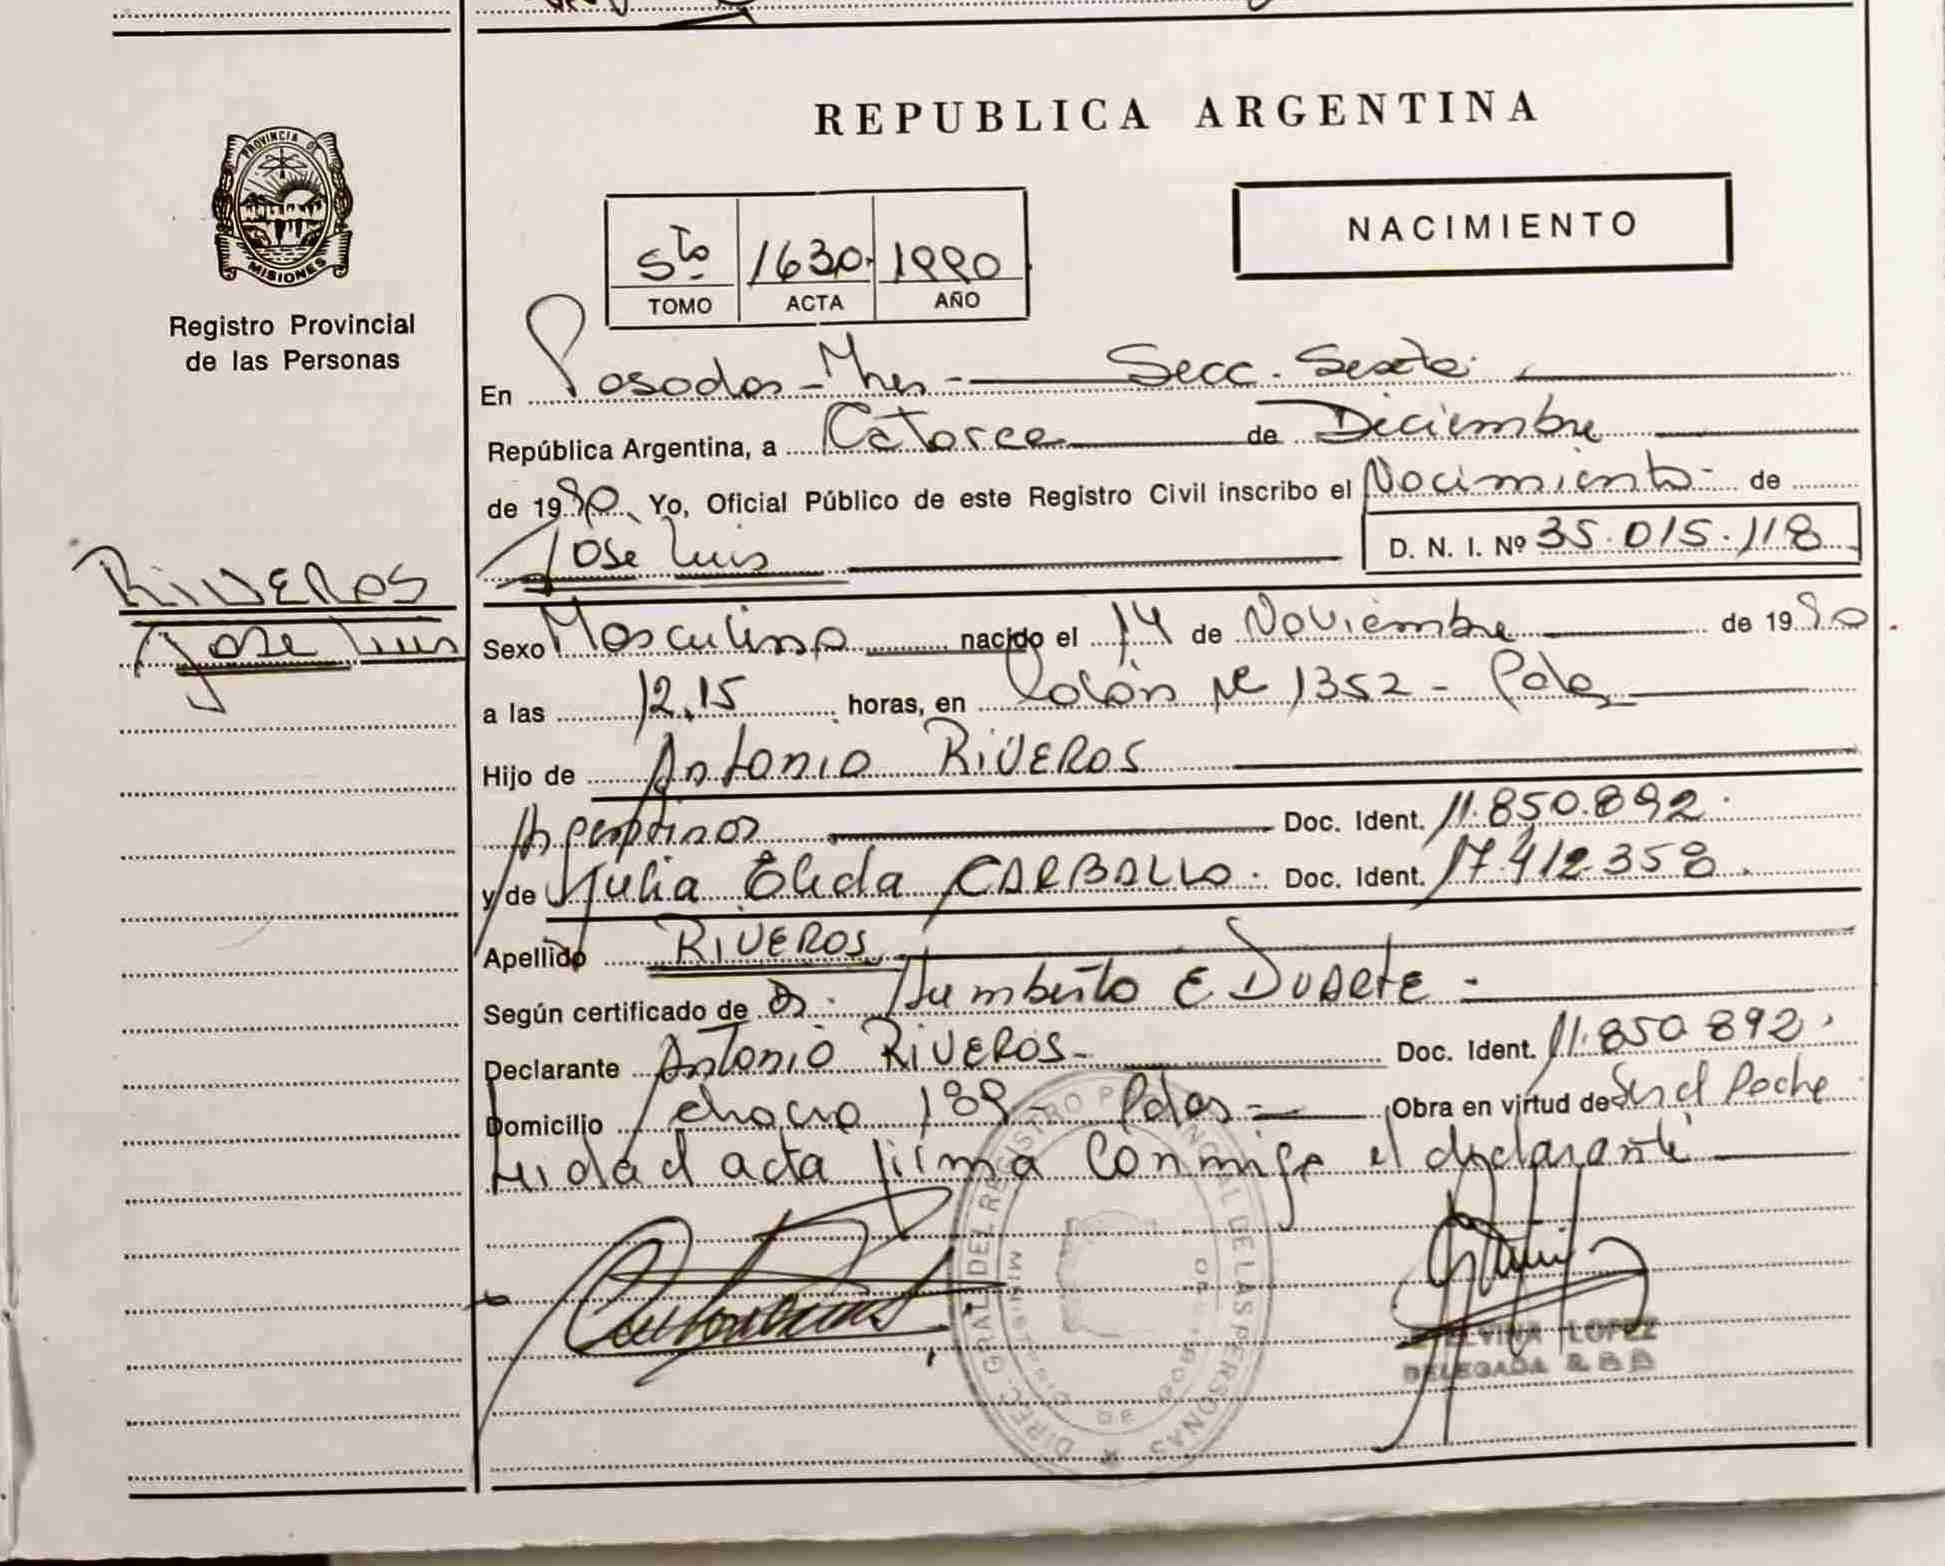 PROVINCIA DE
MISIONES
Registro Provincial
de las Personas
RIVEROS
Jose Luis
REPUBLICA ARGENTINA
NACIMIENTO
5to 1630. 1990
TOMO ACTA AÑO
En Posadas - Mnes - Secc. Sexta
República Argentina, a Catorce de Diciembre
de 1990 Yo, Oficial Público de este Registro Civil inscribo el Nacimiento - de
Jose Luis D. N. I. Nº 35.015.118
Sexo Masculino nacido el 14 de Noviembre de 1990
a las 12,15 horas, en Colón Nº 1352 - Pdas
Hijo de Antonio RIVEROS
Argentinos Doc. Ident. 11.850.892.
y de Julia Elida CARBALLO. Doc. Ident. 17.412.358.
Apellido RIVEROS
Según certificado de Dr. Humberto E DUARTE -
Declarante Antonio RIVEROS - Doc. Ident. 11.850.892.
Domicilio chacra 189 - Pdas - Obra en virtud de
acta firma conmigo el declarante
DIREC. GRAL. DEL REGISTRO PROVINCIAL DE LAS PERSONAS
MINISTERIO DE GOBIERNO
LOPEZ
DELEGADA